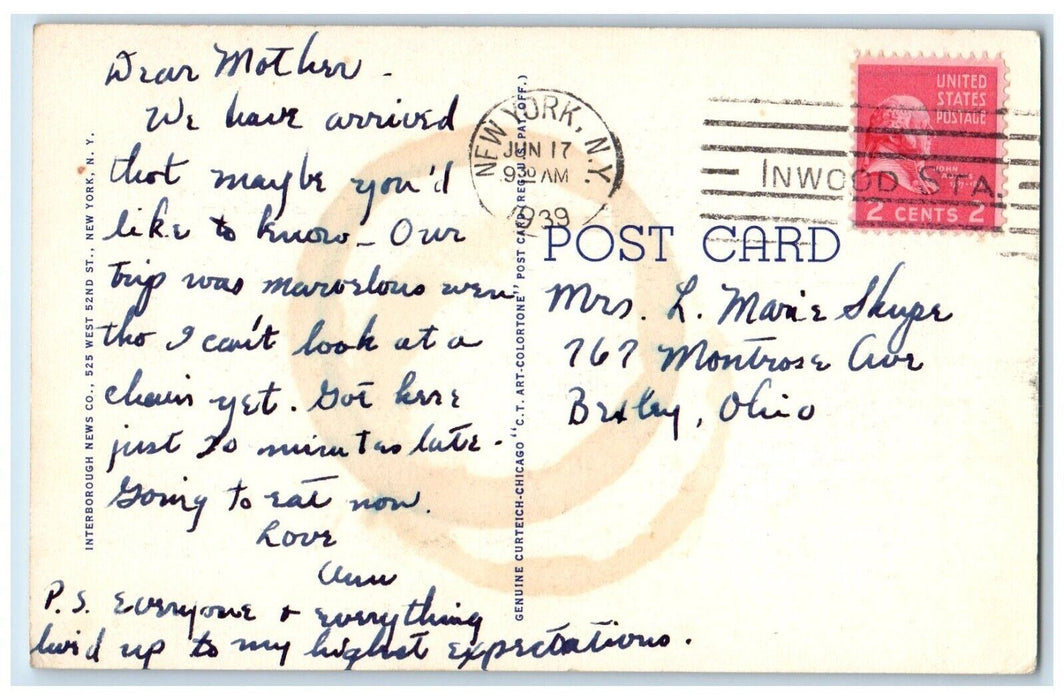 Dear Mother -
We have arrived
that maybe you'd
like to know - Our
trip was marvelous even
tho I can't look at a
chair yet. Got here
just 20 minutes late -
Going to eat now.
Love
Ann
P.S. Everyone + everything
liv'd up to my highest expectations.
INTERBOROUGH NEWS CO., 525 WEST 52ND ST., NEW YORK, N. Y.
GENUINE CURTEICH-CHICAGO "C.T. ART-COLORTONE" POST CARD (REG. U.S. PAT. OFF.)
NEW YORK, N.Y.
JUN 17
9 30 AM
1939
INWOOD STA.
UNITED
STATES
POSTAGE
JOHN
ADAMS
2 CENTS 2
POST CARD
Mrs. L. Marie Skupe
767 Montrose Ave
Bexley, Ohio